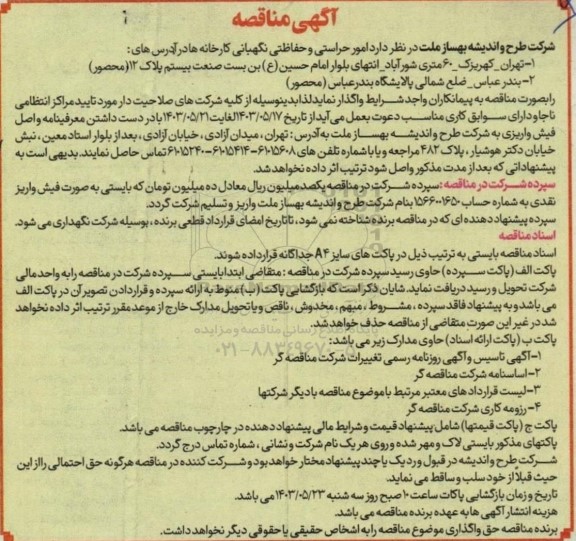 آگهی مناقصه
شرکت طرح و اندیشه بهساز ملت در نظر دارد امور حراستی و حفاظتی نگهبانی کارخانه ها در آدرس های :
۱-تهران_کهریزک_۶۰ متری شورآباد_انتهای بلوار امام حسین (ع) بن بست صنعت بیستم پلاک ۱۲(محصور)
۲-بندر عباس_ضلع شمالی پالایشگاه بندرعباس (محصور)
را بصورت مناقصه به پیمانکاران واجد شرایط واگذار نماید لذا بدینوسیله از کلیه شرکت های صلاحیت دار مورد تایید مراکز انتظامی
ناجا و دارای سوابق کاری مناسب دعوت بعمل می آید از تاریخ ۱۴۰۳/۰۵/۱۷ لغایت ۱۴۰۳/۰۵/۲۱ با در دست داشتن معرفینامه و اصل
فیش واریزی به شرکت طرح و اندیشه بهساز ملت به آدرس : تهران ، میدان آزادی ، خیابان آزادی ، بعد از بلوار استاد معین ، نبش
خیابان دکتر هوشیار ، پلاک ۴۸۲ مراجعه و یا با شماره تلفن های ۶۱۰۱۵۶۰۸-۶۱۰۱۵۴۱۴-۶۱۰۱۵۲۴۰ تماس حاصل نمایند. بدیهی است به
پیشنهاداتی که بعد از مدت مذکور واصل شود ترتیب اثر داده نخواهد شد.
سپرده شرکت در مناقصه : سپرده شرکت در مناقصه یکصد میلیون ریال معادل ده میلیون تومان که بایستی به صورت فیش واریز
نقدی به شماره حساب ۱۵۶۶۰۰۱۶۵۰ بنام شرکت طرح و اندیشه بهساز ملت واریز و تسلیم شرکت گردد.
سپرده پیشنهاد دهنده ای که در مناقصه برنده شناخته نمی شود ، تا تاریخ امضای قرارداد قطعی برنده ، بوسیله شرکت نگهداری می شود.
اسناد مناقصه
اسناد مناقصه بایستی به ترتیب ذیل در پاکت های سایز A۴ جداگانه قرار داده شوند.
پاکت الف (پاکت سپرده) حاوی رسید سپرده شرکت در مناقصه : متقاضی ابتدا بایستی سپرده شرکت در مناقصه را به واحد مالی
شرکت تحویل و رسید دریافت نماید. شایان ذکر است که بازگشایی پاکت (ب) منوط به ارائه سپرده و قراردادن تصویر آن در پاکت الف
می باشد و به پیشنهاد فاقد سپرده ، مشروط ، مبهم ، مخدوش ، ناقص و یا تحویل مدارک خارج از موعد مقرر ترتیب اثر داده نخواهد
شد در غیر این صورت متقاضی از مناقصه حذف خواهد شد.
پاکت ب (پاکت ارائه اسناد) حاوی مدارک زیر می باشد:
۱-آگهی تاسیس و آگهی روزنامه رسمی تغییرات شرکت مناقصه گر
۲-اساسنامه شرکت مناقصه گر
۳-لیست قرارداد های معتبر مرتبط با موضوع مناقصه با دیگر شرکتها
۴-رزومه کاری شرکت مناقصه گر
پاکت ج (پاکت قیمتها) شامل پیشنهاد قیمت و شرایط مالی پیشنهاد دهنده در چارچوب مناقصه می باشد.
پاکتهای مذکور بایستی لاک و مهر شده و روی هر یک نام شرکت و نشانی ، شماره تماس درج گردد.
شرکت طرح و اندیشه در قبول و رد یک یا چند پیشنهاد مختار خواهد بود و شرکت کننده در مناقصه هرگونه حق احتمالی را از این
حیث قبلا از خود سلب و ساقط می نماید.
تاریخ و زمان بازگشایی پاکات ساعت ۱۰ صبح روز سه شنبه ۱۴۰۳/۰۵/۲۳ می باشد.
هزینه انتشار آگهی ها به عهده برنده مناقصه می باشد.
برنده مناقصه حق واگذاری موضوع مناقصه را به اشخاص حقیقی یا حقوقی دیگر نخواهد داشت.
پایگاه اطلاع رسانی مناقصه و مزایده
۰۲۱-۸۸۳۴۹۶۷۰